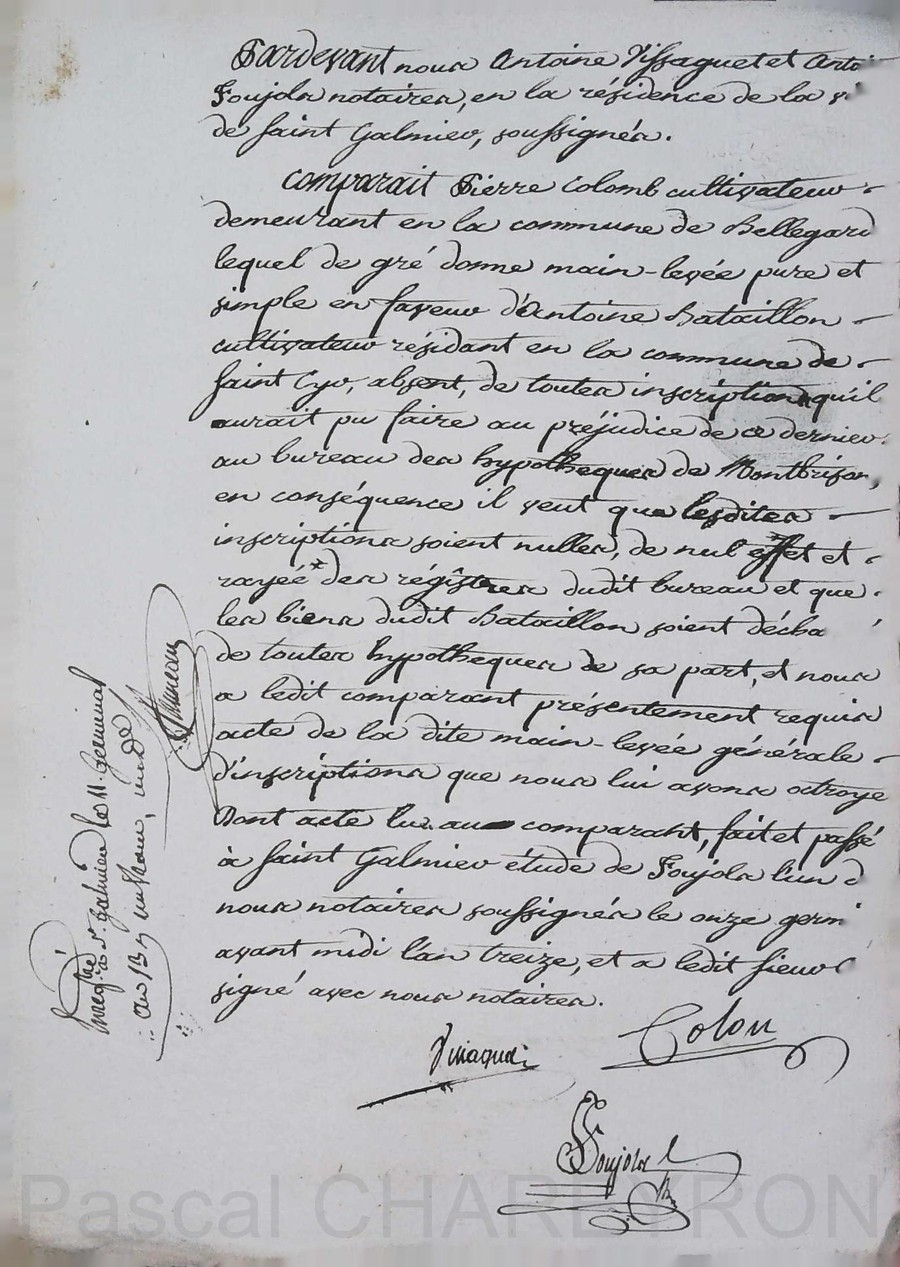 Pardevant nous Antoine Vissaguet et Antoi
Foujols notaires, en la résidence de la vi
de Saint Galmier, soussignés.
comparait Pierre Colomb cultivateur
demeurant en la commune de Bellegard
lequel de gré donne main-levée pure et
simple en faveur d'Antoine Bataillon
cultivateur résidant en la commune de
Saint Cyr, absent, de toutes inscriptions qu'il
aurait pu faire au préjudice de ce dernier
au bureau des hypotheques de Montbrison,
en conséquence il veut que lesdites
inscriptions soient nulles, de nul effet et
rayéés des régistres dudit bureau et que
les biens dudit Bataillon soient décha
de toutes hypotheques de sa part, et nous
a ledit comparant présentement requis
acte de la dite main-levée générale
d'inscriptions que nous lui avons octroyé
Dont acte lu au comparant, fait et passé
à Saint Galmier étude de Foujols l'un d
nous notaires soussignés le onze germi
avant midi l'an treize, et a ledit sieur
signé avec nous notaires.
Colon
Vissaguet
Foujols
Enregtré à St galmier le 11 Germinal
an 13
Pascal CHAREYRON